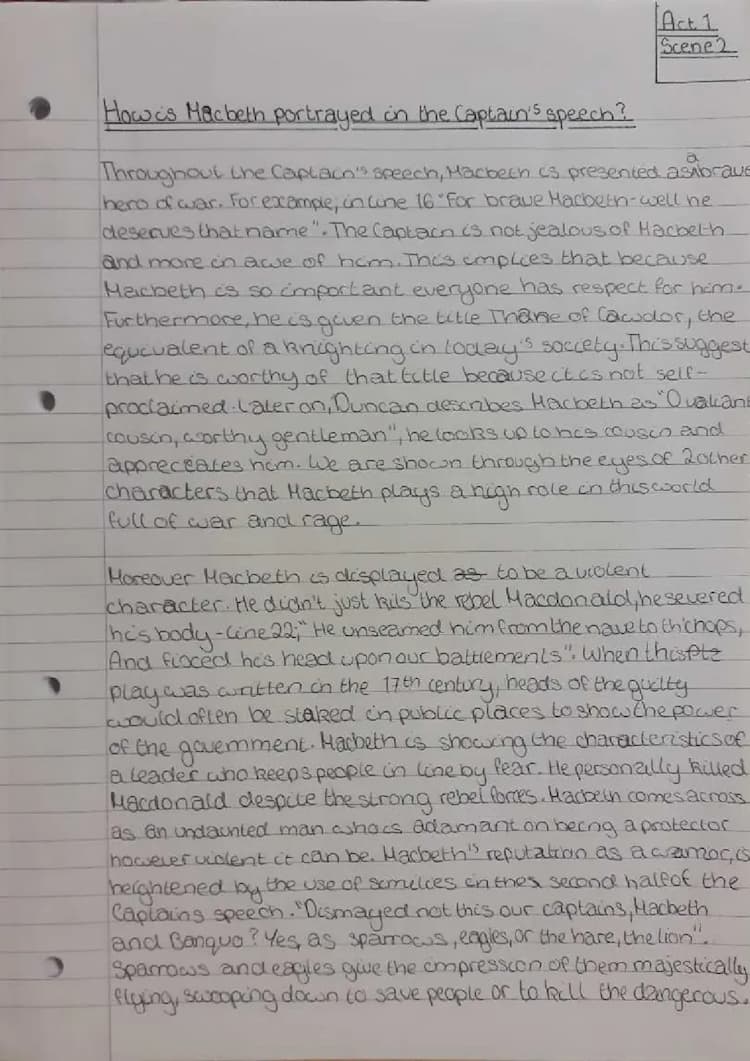 Act 1
Scene 2
How is Macbeth portrayed in the Captain's speech?
Throughout the Captain's speech, Macbeth is presented as a brave
hero of war. For example, in line 16 "For brave Macbeth-well he
deserves that name". The Captain is not jealous of Macbeth
and more in awe of him. This implies that because
Macbeth is so important everyone has respect for him.
Furthermore, he is given the title Thane of Cawdor, the
equivalent of a knighting in today's society. This suggest
that he is worthy of that title because it is not self-
proclaimed. Later on, Duncan describes Macbeth as "O valiant
cousin, worthy gentleman", he looks up to his cousin and
appreciates him. We are shown through the eyes of 2 other
characters that Macbeth plays a high role in this world
full of war and rage.
Moreover Macbeth is displayed as to be a violent
character. He didn't just kill the rebel Macdonald, he severed
his body - line 22; "He unseamed him from the nave to th'chops,
And fixed his head upon our battlements". When this
play was written in the 17th century, heads of the guilty
would often be staked in public places to show the power
of the government. Macbeth is showing the characteristics of
a leader who keeps people in line by fear. He personally killed
Macdonald despite the strong rebel forces. Macbeth comes across
as an undaunted man who is adamant on being a protector
however violent it can be. Macbeth's reputation as a warrior, is
heightened by the use of similies in the second half of the
Captains speech. "Dismayed not this our captains, Macbeth
and Banquo? Yes, as sparrows, eagles, or the hare, the lion".
Sparrows and eagles give the impression of them majestically
flying, swooping down to save people or to kill the dangerous.